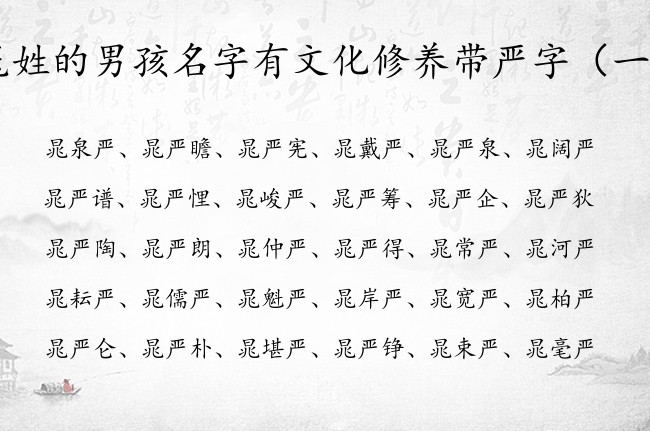 姓的男孩名字有文化修养带严字（一
晁泉严、晁严瞻、晁严宪、晁戴严、晁严泉、晁阔严
晁严谱、晁严悝、晁峻严、晁严筹、晁严企、晁严狄
晁严陶、晁严朗、晁仲严、晁严得、晁常严、晁河严
晁耘严、晁儒严、晁魁严、晁岸严、晁宽严、晁柏严
晁严仑、晁严朴、晁堪严、晁严铮、晁束严、晁毫严